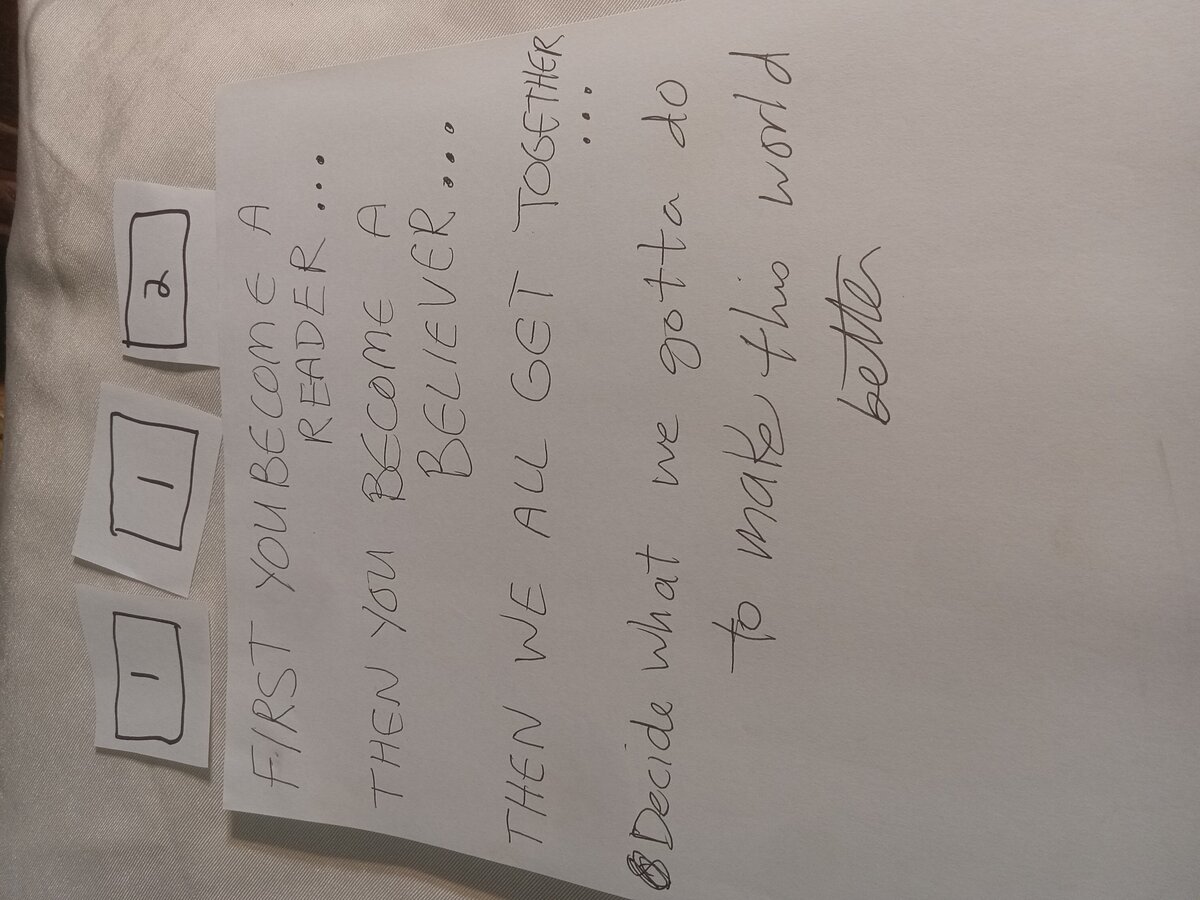 1 1 2
FIRST YOU BECOME A
READER...
THEN YOU BECOME A
BELIEVER...
THEN WE ALL GET TOGETHER
...
Decide what we gotta do
to make this world
better